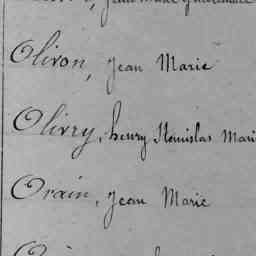 Oliron, Jean Marie
Olivry, henry Stanislas Mari
Orain, Jean Marie